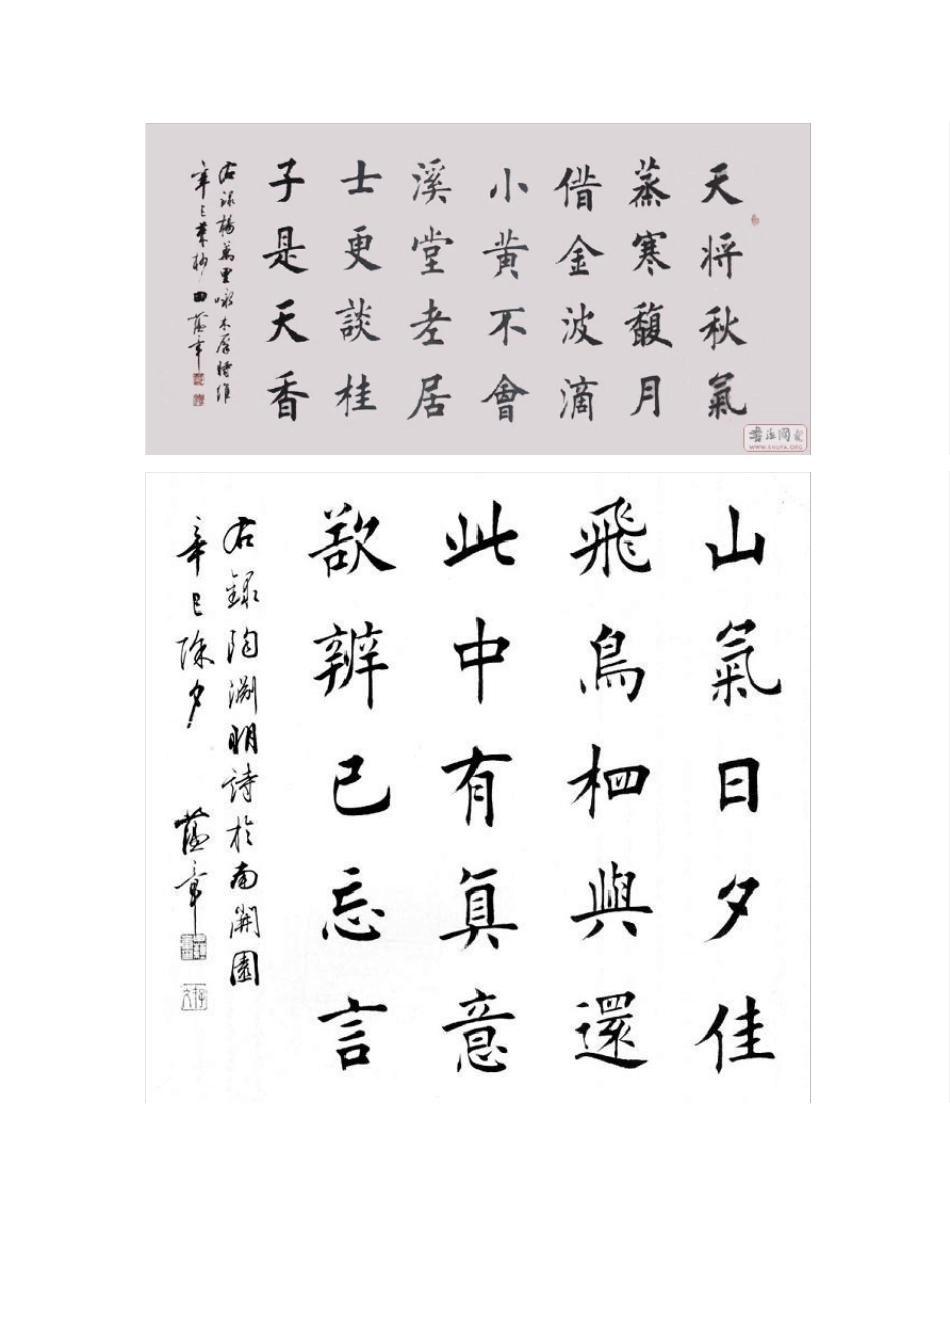 天将秋氣
蒸寒馥月
借金波滴
小黄不會
溪堂老居
士更談桂
子是天香
右録楊萬里咏木犀
辛巳 田蘊章
書法圖
WWW.SHUFA.ORG
山氣日夕佳
飛鳥相與還
此中有真意
欲辨已忘言
右録陶淵明詩於南開園
辛巳除夕 蘊章